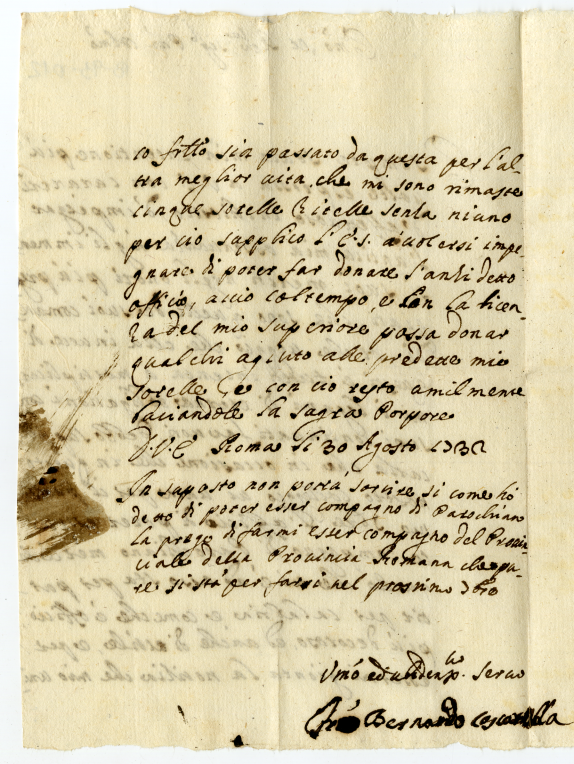 co frttō sia passato da questa per l'al-
tra meglior vita, che mi sono rimaste
cinque sorelle zitelle senza niuno
per ciò supplico l'E.S. a volersi impe-
gnare di poter far donare l'antidetto
officio, acciò col tempo, e con la licen-
za del mio superiore possa donar
qualchi agiuto alle predette mie
sorelle e con ciò resto umilmente
baciandole la sagra Porpore
D.V.E Roma li 30 Agosto 1732
In suposto non potrà sortire, si come hò
detto di poter esser compagno di
la prego di farmi esser compagno del Provin-
ciale della Provincia Romana che pu-
re si stà per farsi nel prossimo 3bro
Umō ed servo
Bernardo